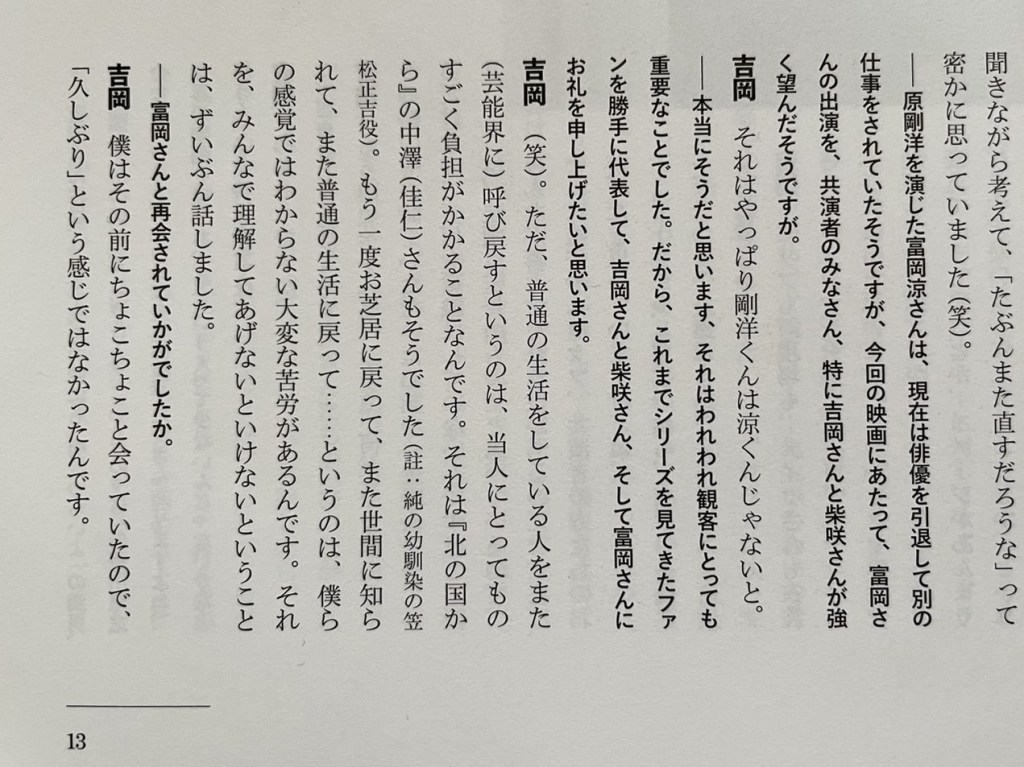 聞きながら考えて、「たぶんまた直すだろうな」って
密かに思っていました(笑)。
――原剛洋を演じた富岡涼さんは、現在は俳優を引退して別の
仕事をされていたそうですが、今回の映画にあたって、富岡さ
んの出演を、共演者のみなさん、特に吉岡さんと柴咲さんが強
く望んだそうですが。
吉岡 それはやっぱり剛洋くんは涼くんじゃないと。
――本当にそうだと思います、それはわれわれ観客にとっても
重要なことでした。だから、これまでシリーズを見てきたファ
ンを勝手に代表して、吉岡さんと柴咲さん、そして富岡さんに
お礼を申し上げたいと思います。
吉岡 (笑)。ただ、普通の生活をしている人をまた
(芸能界に)呼び戻すというのは、当人にとってもの
すごく負担がかかることなんです。それは『北の国か
ら』の中澤(佳仁)さんもそうでした(註:純の幼馴染の笠
松正吉役)。もう一度お芝居に戻って、また世間に知ら
れて、また普通の生活に戻って……というのは、僕ら
の感覚ではわからない大変な苦労があるんです。それ
を、みんなで理解してあげないといけないということ
は、ずいぶん話しました。
――富岡さんと再会されていかがでしたか。
吉岡 僕はその前にちょこちょこと会っていたので、
「久しぶり」という感じではなかったんです。
13